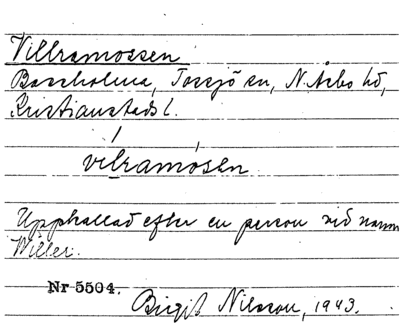 Villramossen
Bassholma, Tossjö sn, N. Åsbo hd,
Kristianstads l.
vilramósen
Upphallad efter en person vid namn
Willer.
Nr 5504.
Birgit Nilsson, 1943.